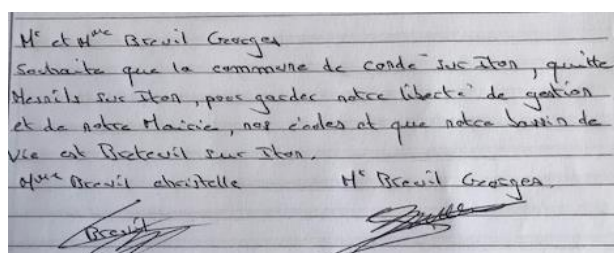 Mr et Mme Breuil Georges
Souhaite que la commune de condé sur Iton, quitte
Mesnils sur Iton, pour garder notre liberté de gestion
et de notre Mairie, nos écoles et que notre bassin de
vie est Breteuil sur Iton.
Mme Breuil christelle Mr Breuil Georges.
Breuil